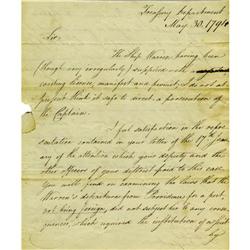 Treasury Department
May 30. 1794
Sir.
The Ship Warren having been
(though very irregularly) supplied with a
coasting license, manifest and permit, I do not at
present think it safe to direct a prosecution of
the Captain.
I feel satisfaction in the repre
sentation contained in your letter of the 17th
of the attention which your deputy and the
other officers of your district paid to this case.
You will find on examining the Laws that the
Warren's departure from Providence for a port,
not being foreign, did not subject her to any conse
quences, which required the institution of a suit
by